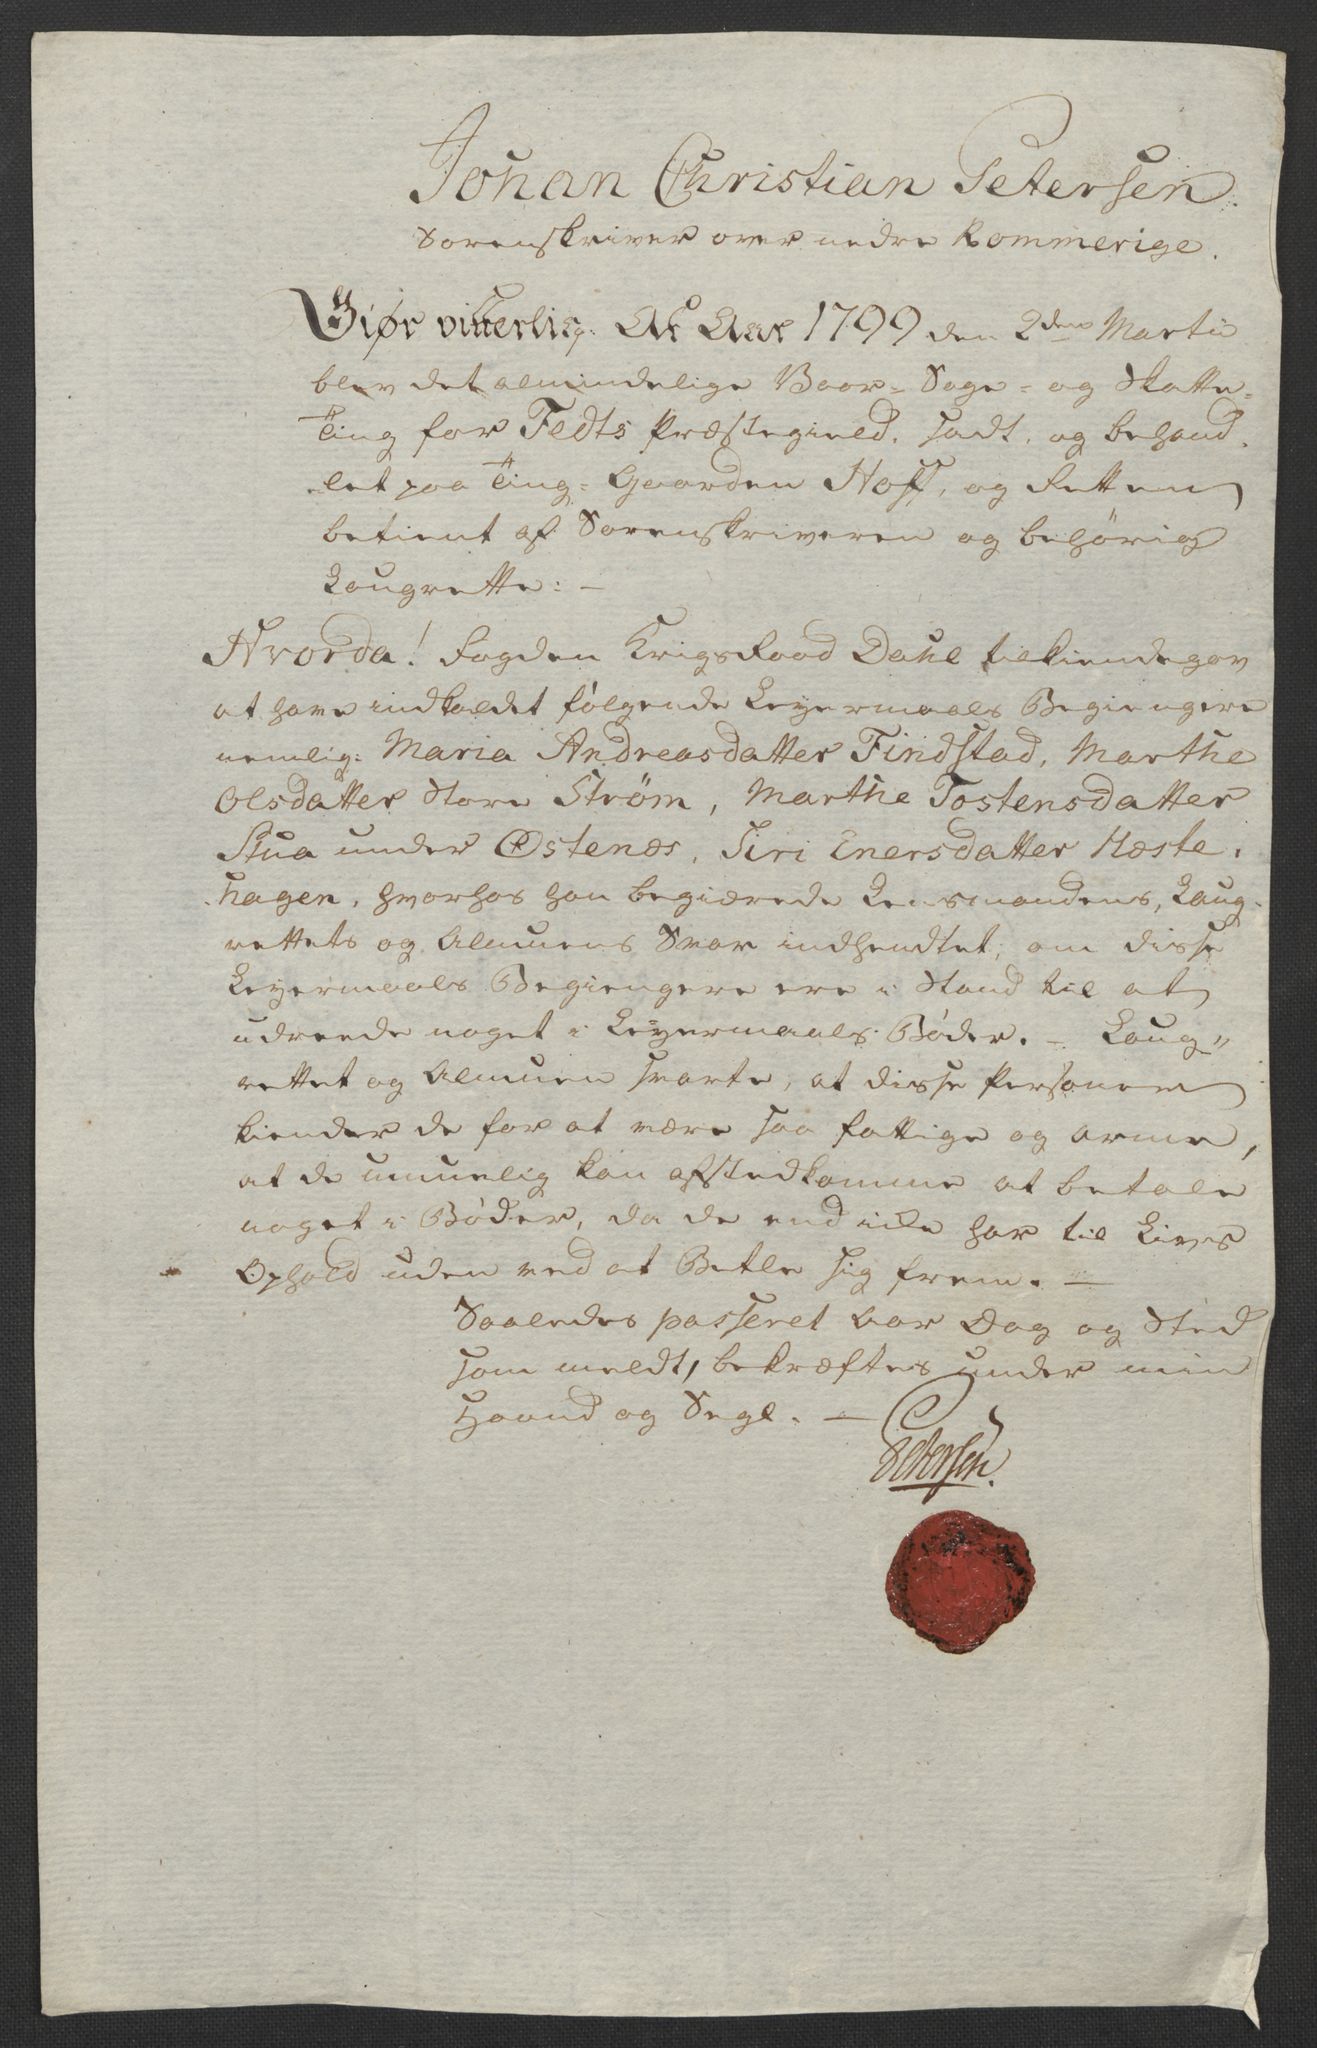 Johan Christian Petersen
Sorenskriver over nedre Rommerige.
Giør vitterlig: At Aar 1799 den 2den Martii
blev det almindelige Vaar-Sage- og Skatte-
Ting for Fedts Præstegield, sadt, og behand-
let paa Ting-Gaarden Hoff, og Retten
betient af Sorenskriveren og behørig
Laugrette: -
Hvorda! Fogden Krigs Raad Dahl tilkiendegav
at have indkaldet følgende Leyermaals Begiengere
nemlig: Maria Andreasdatter Findstad, Marthe
Olsdatter Store Strøm, Marthe Tostensdatter
Stua under Østenæs, Siri Enersdatter Hæste-
hagen, hvorhos han begiærede Lensmandens, Laug-
rettets og Almuens Svar indhendtet, om disse
Leyermaals Begiengere ere i Stand til at
udreede noget i Leyermaals Bøder. - Laug-
rettet og Almuen svarte, at disse Personer
kiender de for at være saa fattige og arme,
at de umuelig kan afstedkomme at betale
noget i Bøder, da de end icke har til Livs
Ophold uden ved at Betle sig frem. -
Saaledes passeret bar Dag og Sted
som meldt, bekræftes under min
Haand og Segl. -
Petersen.